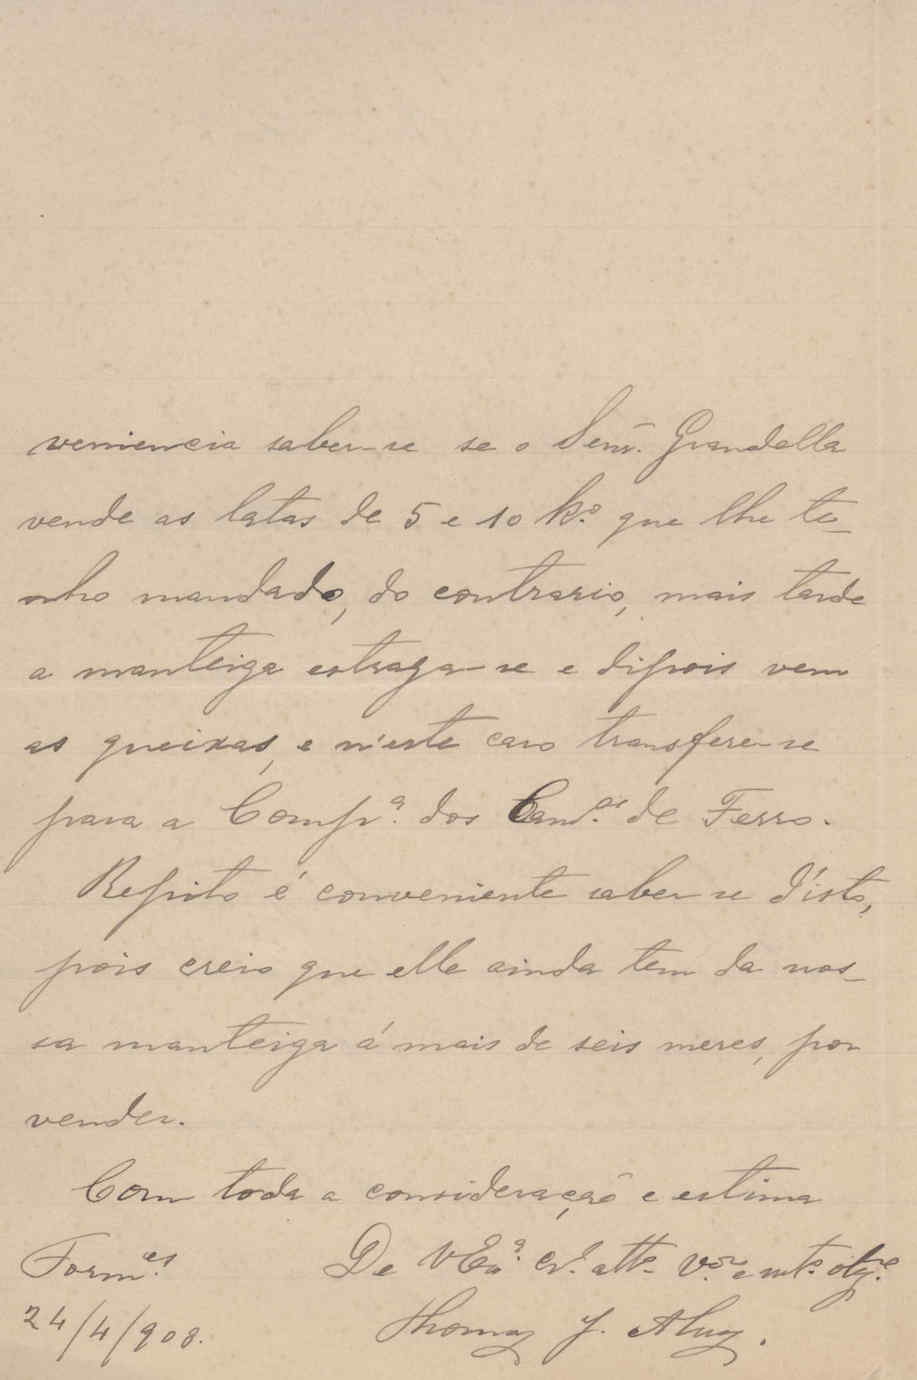 veniencia saber-se se o Senr. Grandella
vende as latas de 5 e 10 k.º que lhe te-
nho mandado, do contrario, mais tarde
a manteiga estraga-se e dipois vem
as queixas, e n'este caso transfere-se
para a Comp.ª dos Cam.os de Ferro.
Repito é conveniente saber-se d'isto,
pois creio que elle ainda tem da nos-
sa manteiga á mais de seis meses, por
vender.
Com toda a consideração e estima
Form.es De V Ex.ª Cr.º att.º V.or e mt.º obg.º
24/4/908. Thomaz J.